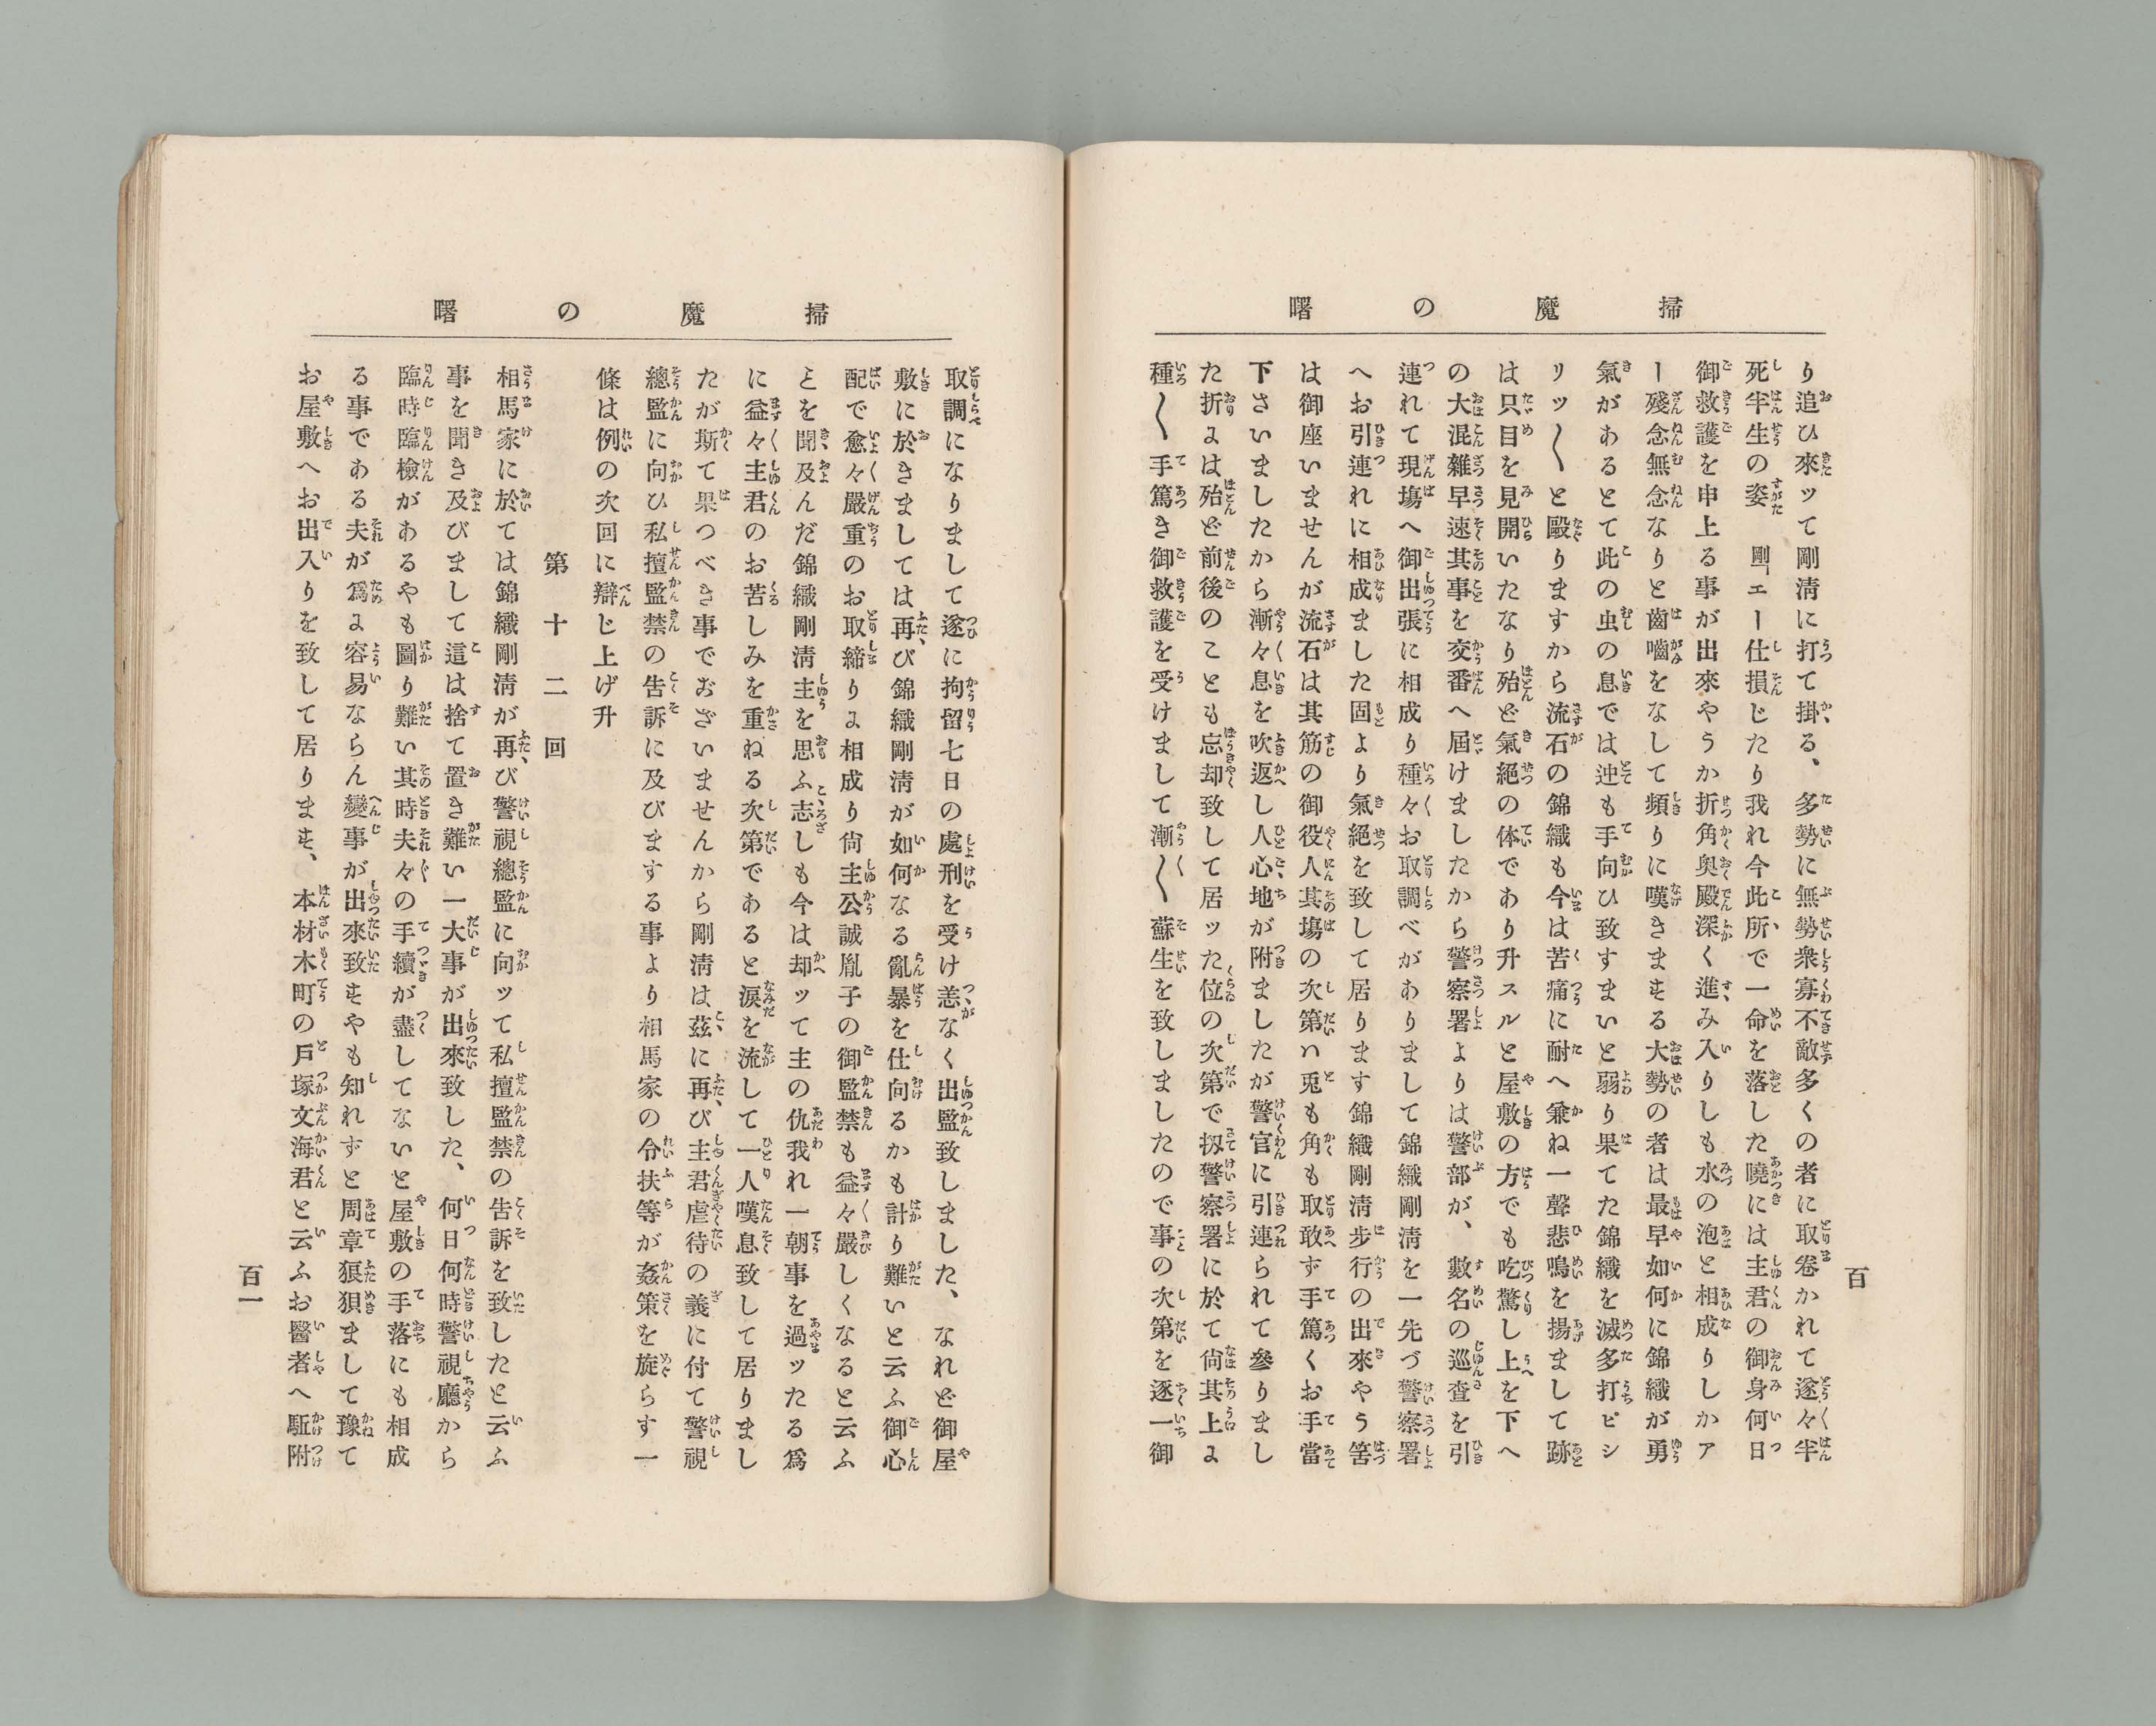 掃魔の曙
百
り追ひ來ッて剛淸に打て掛る、多勢に無勢衆寡不敵多くの者に取卷かれて遂々半
死半生の姿 剛「エー仕損じたり我れ今此所で一命を落した曉には主君の御身何日
御救護を申上る事が出來やうか折角奥殿深く進み入りしも水の泡と相成りしかア
ー殘念無念なりと齒嚙をなして頻りに嘆きまする大勢の者は最早如何に錦織が勇
氣があるとて此の虫の息では迚も手向ひ致すまいと弱り果てた錦織を滅多打ピシ
リッ〱と毆りますから流石の錦織も今は苦痛に耐へ兼ね一聲悲鳴を揚まして跡
は只目を見開いたなり殆ど氣絕の体であり升スルと屋敷の方でも吃驚し上を下へ
の大混雜早速其事を交番へ屆けましたから警察署よりは警部が、數名の巡査を引
連れて現塲へ御出張に相成り種々お取調べがありまして錦織剛淸を一先づ警察署
へお引連れに相成ました固より氣絕を致して居ります錦織剛淸步行の出來やう筈
は御座いませんが流石は其筋の御役人其塲の次第ハ兎も角も取敢へず手篤くお手當
下さいましたから漸々息を吹返し人心地が附ましたが警官に引連られて參りまし
た折よは殆ど前後のことも忘却致して居ッた位の次第で扨警察署に於て尙其上よ
種〱手篤き御救護を受けまして漸〱蘇生を致しましたので事の次第を逐一御
掃魔の曙
取調になりまして遂に拘留七日の處刑を受け恙なく出監致しました、なれど御屋
敷に於きましては、再び錦織剛淸が如何なる亂暴を仕向るかも計り難いと云ふ御心
配で愈々嚴重のお取締りよ相成り尙主公誠胤子の御監禁も益々嚴しくなると云ふ
とを聞及んだ錦織剛淸主を思ふ志しも今は却ッて主の仇我れ一朝事を過ッたる爲
に益々主君のお苦しみを重ねる次第であると淚を流して一人嘆息致して居りまし
たが斯て果つべき事でおざいませんから剛淸は玆に再び主君虐待の義に付て警視
總監に向ひ私擅監禁の告訴に及びまする事より相馬家の令扶等が姦策を旋らす一
條は例の次回に辯じ上げ升
第十二回
相馬家に於ては錦織剛淸が再び警視總監に向ッて私擅監禁の告訴を致したと云ふ
事を聞き及びまして這は捨て置き難い一大事が出來致した、何日何時警視廳から
臨時臨檢があるやも圖り難い其時夫々の手續が盡してないと屋敷の手落にも相成
る事である夫が爲よ容易ならん變事が出來致すやも知れずと周章狼狽まして豫て
お屋敷へお出入りを致して居ります、本材木町の戶塚文海君と云ふお醫者へ駈附
百一